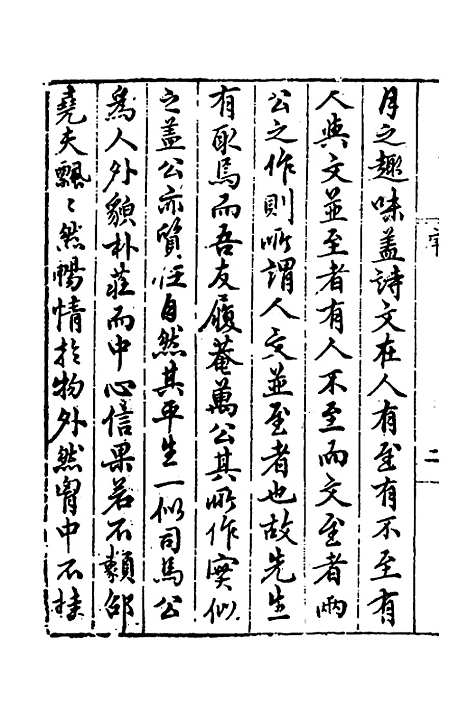 月之趣味蓋詩文在人有至有不至有
人與文並至者有人不至而文至者兩
公之作則所謂人文並至者也故先生
有取焉而吾友履菴萬公其所作實似
之蓋公亦質任自然其平生一似司馬公
爲人外貌朴莊而中心信果若不類邵
堯夫飄〻然暢情於物外然胷中不挂
二